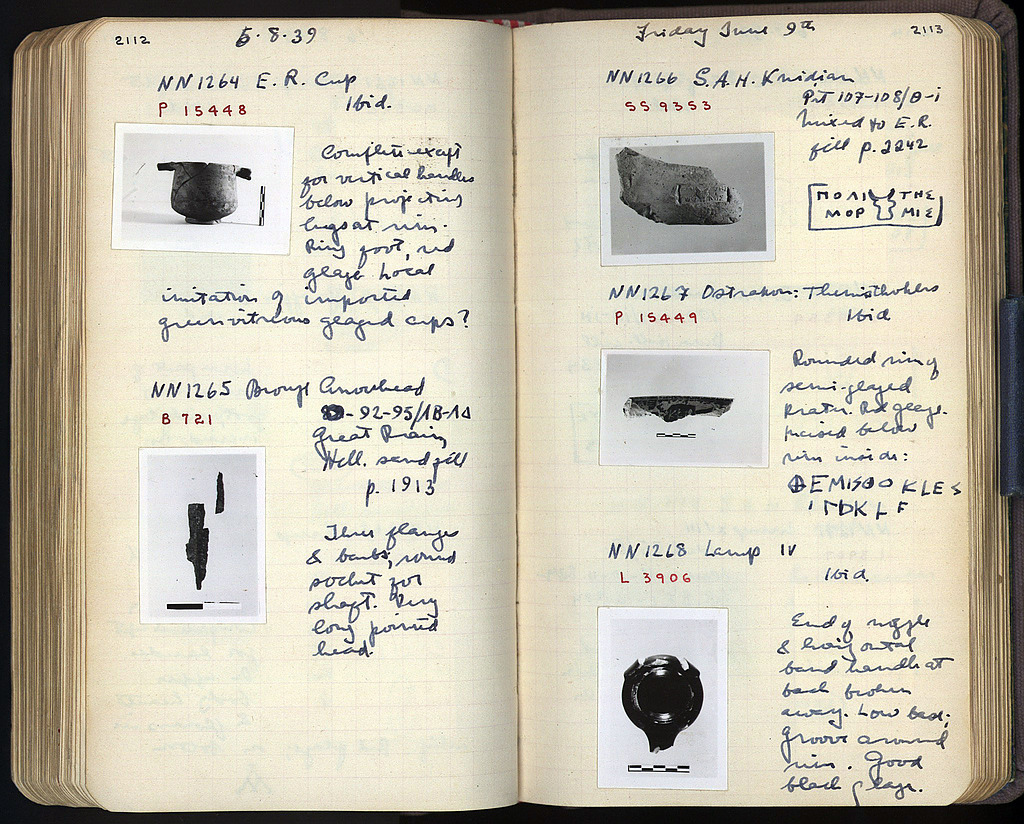 2112
5·8·39
NN1264 E. R. Cup
P 15448
Ibid.
Complete except
for vertical handles
below projecting
lugs at rim.
Ring foot, red
glaze. Local
imitation of imported
green vitreous glazed cups?
NN1265 Bronze Arrowhead
B 721
-92-95/ΙΒ-ΙΔ
Great Drain,
Hell. sand fill
p. 1913
Three flanges
& barbs, round
socket for
shaft. Very
long pointed
head.
Friday June 9th
2113
NN1266 S.A.H. Knidian
SS 9353
Pit 107-108/Θ-i
mixed to E.R.
fill p. 2242
ΠΟΛΙ ΤΗΕ
ΜΟΡ ΜΙΣ
NN1267 Ostrakon: Themisthokles
P 15449
Ibid
Rounded rim of
semi-glazed
krater. Red glaze.
Incised below
rim inside:
ΘEMISΘOKLES
NN1268 Lamp IV
L 3906
Ibid.
End of nozzle
& horizontal
band handle at
back broken
away. Low base;
groove around
rim. Good
black glaze.